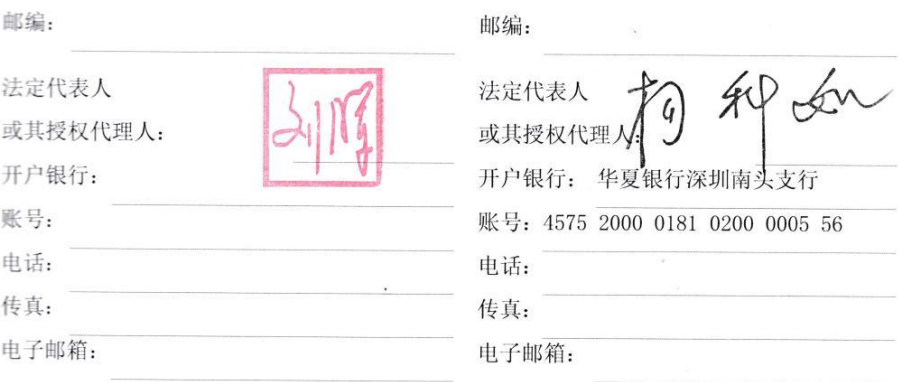 邮编：
法定代表人
或其授权代理人：
刘晖
开户银行：
账号：
电话：
传真：
电子邮箱：
邮编：
法定代表人
或其授权代理人
柯科如
开户银行：华夏银行深圳南头支行
账号：4575 2000 0181 0200 0005 56
电话：
传真：
电子邮箱：